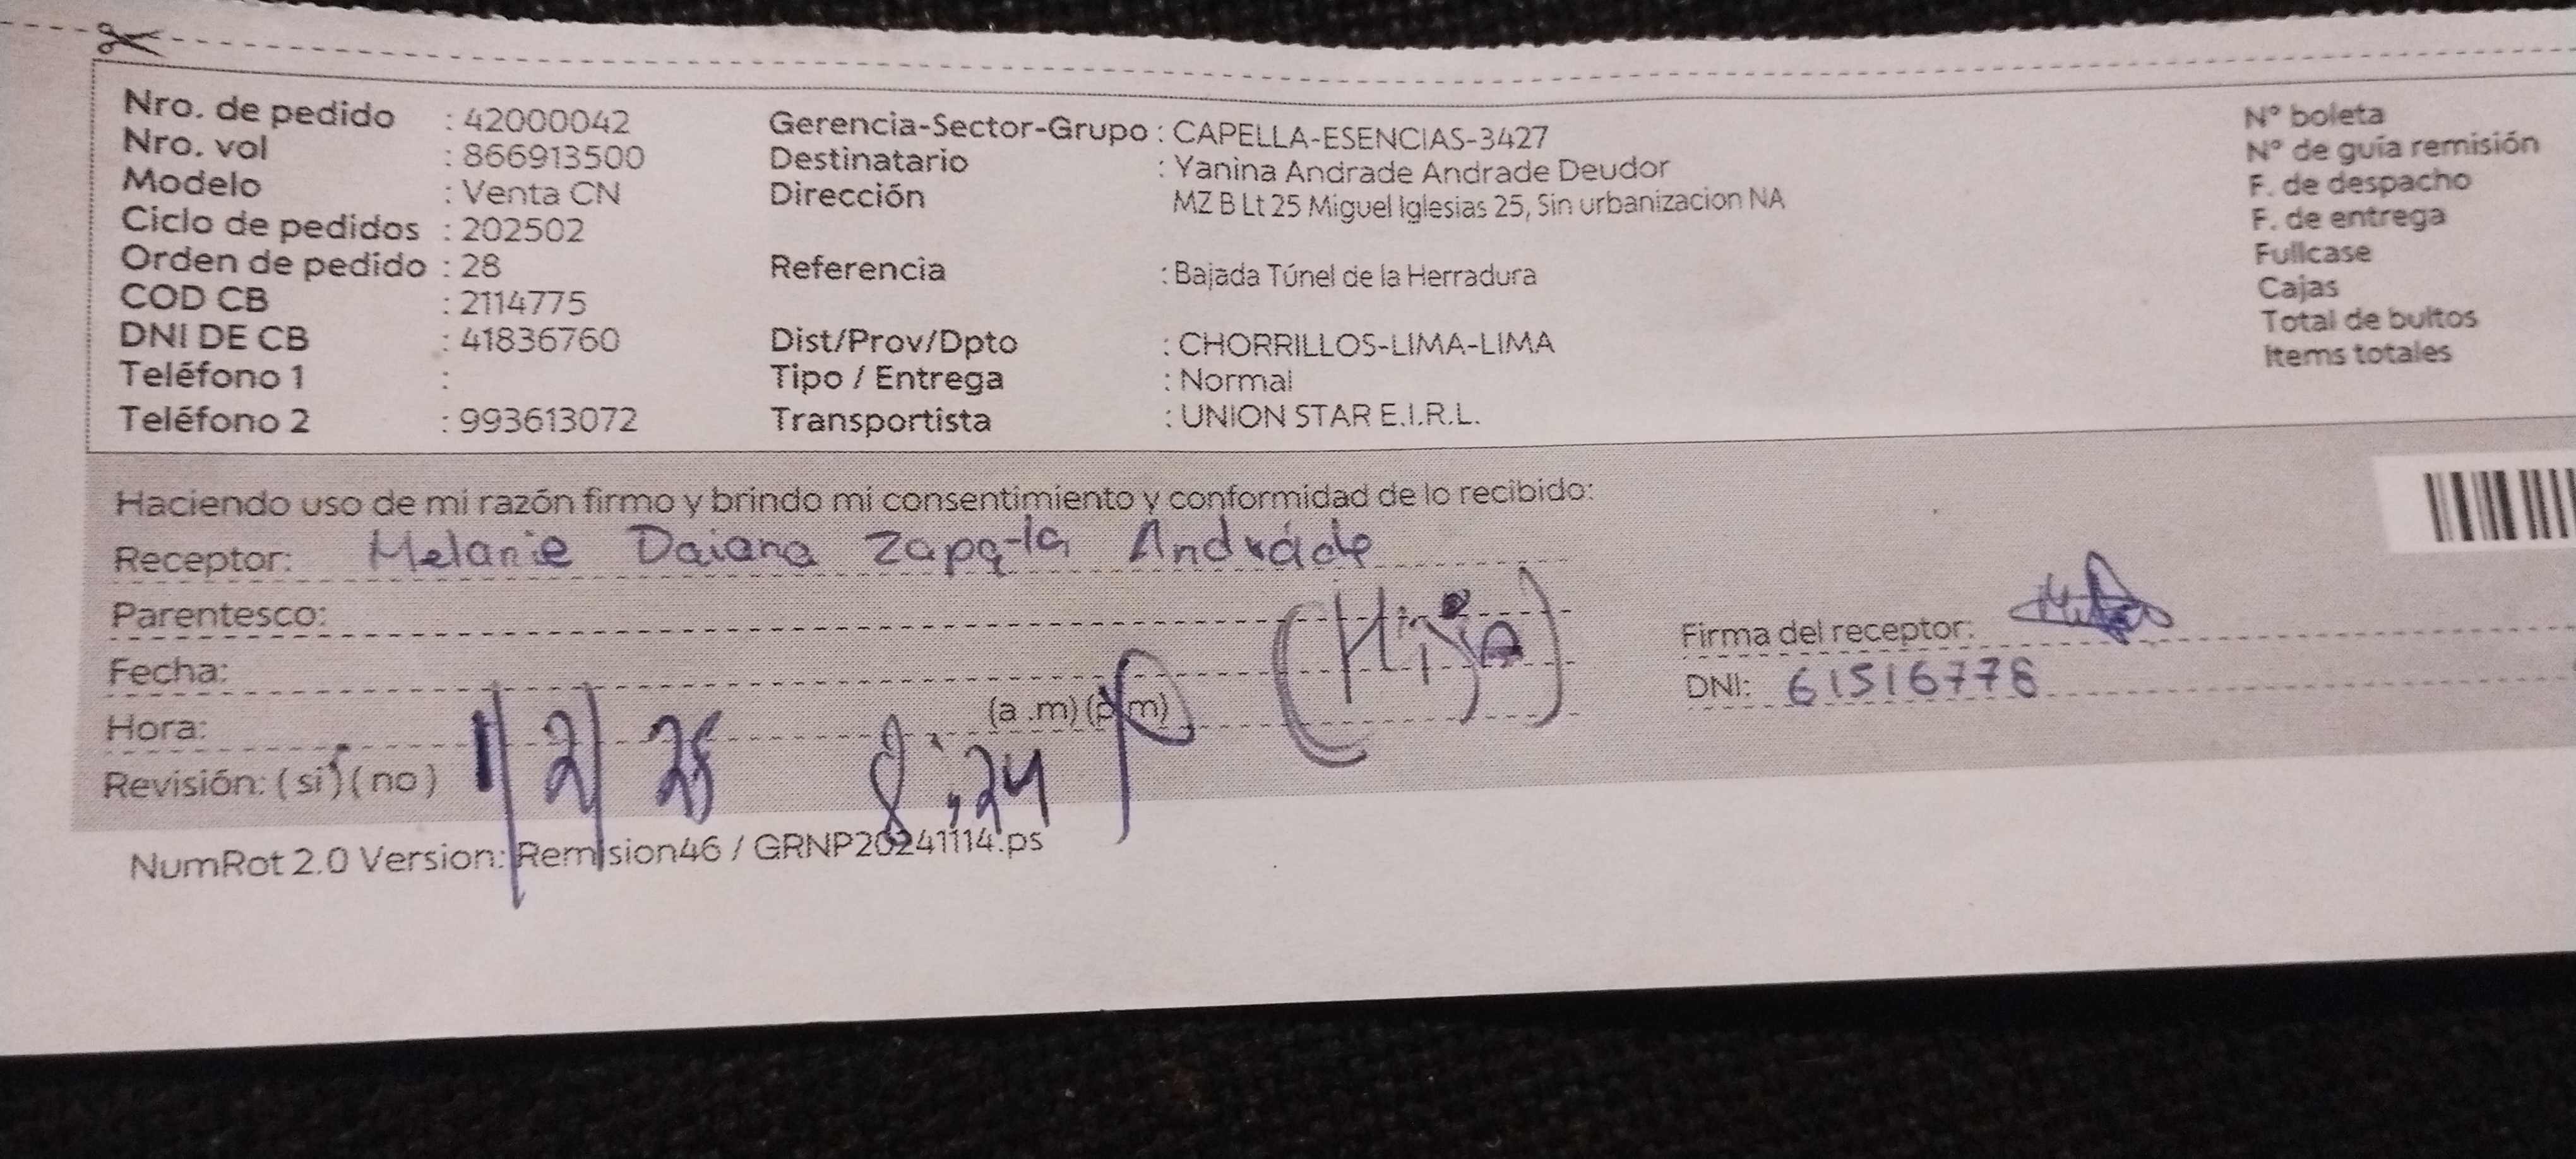 Nro. de pedido : 42000042
Nro. vol : 866913500
Modelo : Venta CN
Ciclo de pedidos : 202502
Orden de pedido : 28
COD CB : 2114775
DNI DE CB : 41836760
Teléfono 1 :
Teléfono 2 : 993613072
Gerencia-Sector-Grupo : CAPELLA-ESENCIAS-3427
Destinatario : Yanina Andrade Andrade Deudor
Dirección MZ B Lt 25 Miguel Iglesias 25, Sin urbanizacion NA
Referencia : Bajada Túnel de la Herradura
Dist/Prov/Dpto : CHORRILLOS-LIMA-LIMA
Tipo / Entrega : Normal
Transportista : UNION STAR E.I.R.L.
N° boleta
N° de guía remisión
F. de despacho
F. de entrega
Fullcase
Cajas
Total de bultos
Items totales
Haciendo uso de mi razón firmo y brindo mi consentimiento y conformidad de lo recibido:
Receptor: Melanie Daiana Zapata Andrade
Parentesco: (Hija)
Firma del receptor:
Fecha:
DNI: 61516778
Hora: (a .m) (p.m)
Revisión: (si) (no) 1/2/25 8:24 P
NumRot 2.0 Version: Remision46 / GRNP20241114.ps